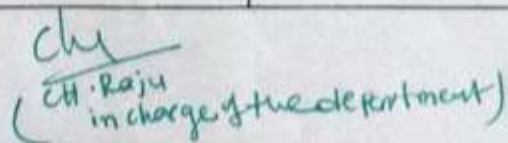 CH. Raju
(in charge of the department)